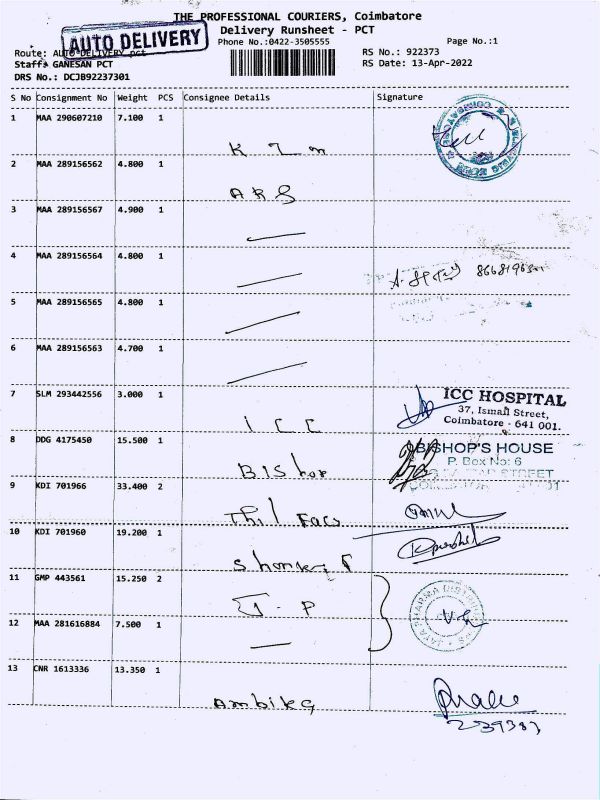 THE PROFESSIONAL COURIERS, Coimbatore
Delivery Runsheet - PCT
AUTO DELIVERY
Phone No.:0422-3505555
Page No.:1
Route: AUTO DELIVERY pct
RS No.: 922373
Staff: GANESAN PCT
RS Date: 13-Apr-2022
DRS No.: DCJB92237301
S No Consignment No Weight PCS Consignee Details Signature
1 MAA 290607210 7.100 1
2 MAA 289156562 4.800 1
ARS
3 MAA 289156567 4.900 1
4 MAA 289156564 4.800 1
5 MAA 289156565 4.800 1
6 MAA 289156563 4.700 1
7 SLM 293442556 3.000 1
ICC
ICC HOSPITAL
37, Ismail Street,
Coimbatore - 641 001.
8 DDG 4175450 15.500 1
BIShop
BISHOP'S HOUSE
P. Box No: 6
STREET
9 KDI 701966 33.400 2
10 KDI 701960 19.200 1
11 GMP 443561 15.250 2
12 MAA 281616884 7.500 1
13 CNR 1613336 13.350 1
Ambika